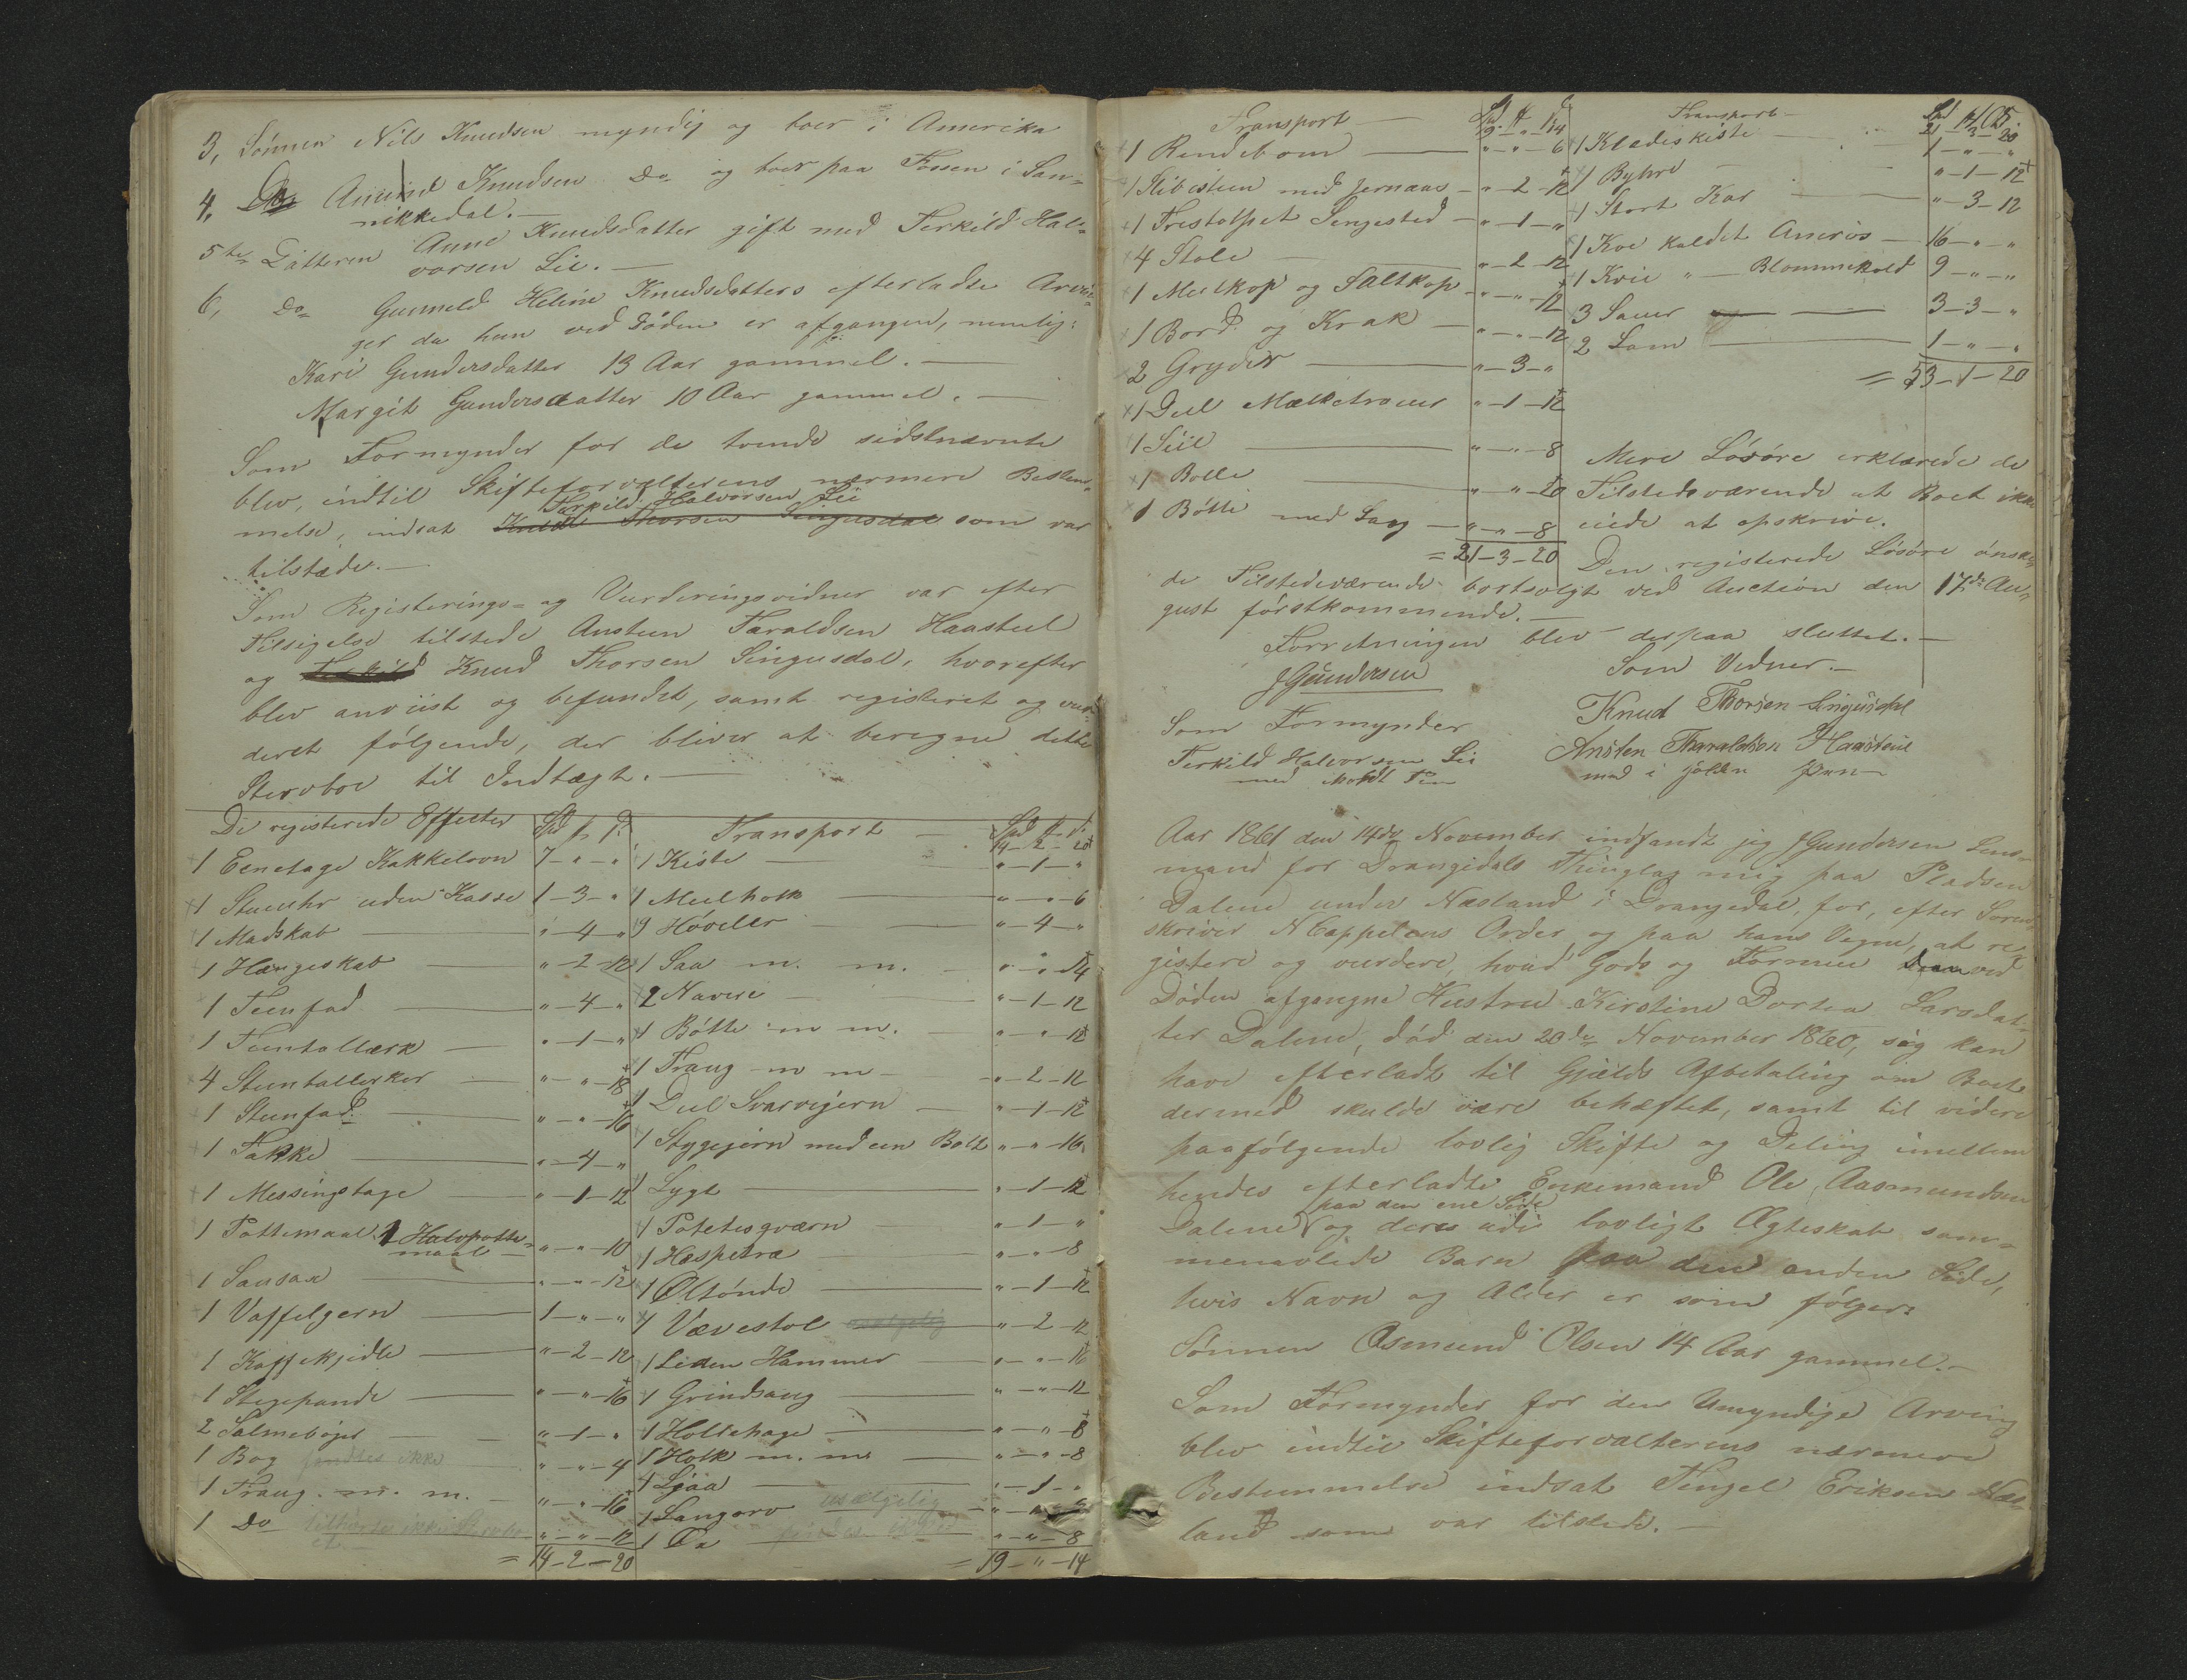 3, Sönnen Nils Knudsen myndig og boer i Amerika
4, Do Anund Knudsen Do og boer paa Fossen i San-
nikedal.—
5te Datteren Anne Knudsdatter gift med Terkild Hal-
vorsen Lie.—
6, Do Gunneld Heline Knudsdatters efterladte Arvin-
ger da hun ved Döden er afgangen, nemlig:
Kari Gundersdatter 13 Aar gammel.—
Margit Gundersdatter 10 Aar gammel.—
Som Formynder for de tvende sidstnævnte
blev, indtil Skifteforvalterens nærmere Bestem-
Terkild Halvorsen Lie
melse, indsat Knud Thorsen Singusdal som var
tilstæde.—
Som Registerings- og Vurderingsvidner var efter
Tilsigelse tilstede Austeen Taraldsen Haasteel
og Terkild Knud Thorsen Singusdal, hvorefter
blev anviist og befundet, samt registeret og vur-
deret følgende, der bliver at beregne dette
Stervboe til Indtægt.—
De registerede Effecter Spd ß
1 Eenetage Kakkelovn 7-"-"
1 Stueuhr uden Kasse 1-3-"
1 Madskab "-4-"
1 Hængeskab "-2-12
1 Teenfad "-4-"
1 Teentallærk "-1-"
4 Steentallerker "-"-18
1 Steenfad "-"-16
1 Takke "-4-"
1 Messingstage "-1-12
1 Pottemaal 1 Halvpotte-
maal "-"-10
1 Sausax "-"-12
1 Vaffelgern 1-"-"
1 Kaffekjedle "-2-12
1 Stegepande "-"-16
2 Salmebøger "-1-"
1 Bog fandtes ikke "-"-4
1 Traug m. m. "-"-16
1 Do "-"-12
= 14-2-20
Transport Spd
14-2-20
1 Kiste "-1-"
1 Meelholk "-"-6
9 Höveller "-4-"
1 Saa m. m. "-"-14
2 Navere "-1-12
1 Bötte m m. "-"-18
1 Traug m m "-2-12
1 Deel Svarvejern "-1-12
1 Stygejern med een Bolt "-"-16
1 Lygt "-1-12
1 Potetesqværn "-1-"
1 Hespetræ "-"-8
1 Oltönde "-1-12
1 Vævestol "-2-12
1 Liden Hammer "-"-16
1 Grindsaug "-"-12
1 Hollehage "-"-8
1 Holk m. m. "-"-8
1 Ljaa "-1-"
1 Langorv usælgelig
1 Öx "-"-8
= 19-"-14
Transport
19-"-14
1 Rendebom "-"-6
1 Slibesteen med Jernaas "-2-12
1 Trestolpet Sengested "-1-"
4 Stole "-2-12
1 Meelkop og Saltkop "-"-12
1 Bord og Krak "-"-12
2 Gryder "-3-"
1 Deel Melketrouer "-1-12
1 Siil "-"-8
1 Bolle "-"-20
1 Bötte med Laag "-"-8
= 21-3-20
Transport
25.
21-3-20
1 Klædeskiste 1-"-"
1 Byhre "-1-12
1 Stort Kar "-3-12
1 Koe kaldet Aneros 16-"-"
1 Kvie "— Blommekold 9-"-"
3 Sauer 3-3-"
2 Lam 1-"-"
= 53-1-20
Mere Lösöre erklærede de
Tilstedeværende at Boet ikke
eiede at opskrive.
Den registerede Lösöre önske-
de Tilstedeværende bortsolgt ved Auction den 17de Au-
gust förstkommende.—
Forretningen blev derpaa sluttet.—
JGundersen Som Vidner.—
Som Formynder Knud Thorsen Singusdal
Terkild Halvorsen Lie Ansten Tharaldsen Haasteiil
med Pen med i holden Pen
Aar 1861 den 14de November indfandt jeg JGundersen Lens-
mand for Drangedals Thinglag mig paa Pladsen
Dalene under Næsland i Drangedal, for, efter Soren-
skriver NCappelens Order og paa hans Vegne, at re-
gistere og vurdere, hvad Gods og Formue den ved
Döden afgangne Hustru Kirstine Dortea Larsdat-
ter Dalene, död den 20de November 1860, sig kan
have efterladt til Gjælds Afbetaling om Boet
dermed skulde være behæftet, samt til videre
paafölgende lovlig Skifte og Deling imellem
hendes efterladte Enkemand Ole Aasmundsen
paa den ene Side
Dalene og deres udi lovligt Ægteskab sam-
menavlede Barn paa den anden Side,
hvis Navn og Alder er som følger:
Sönnen Osmund Olsen 14 Aar gammel.—
Som Formynder for den Umyndige Arving
blev indtil Skifteforvalterens nærmere
Bestemmelse indsat Tengel Eriksen Næs-
land som var tilstede.—